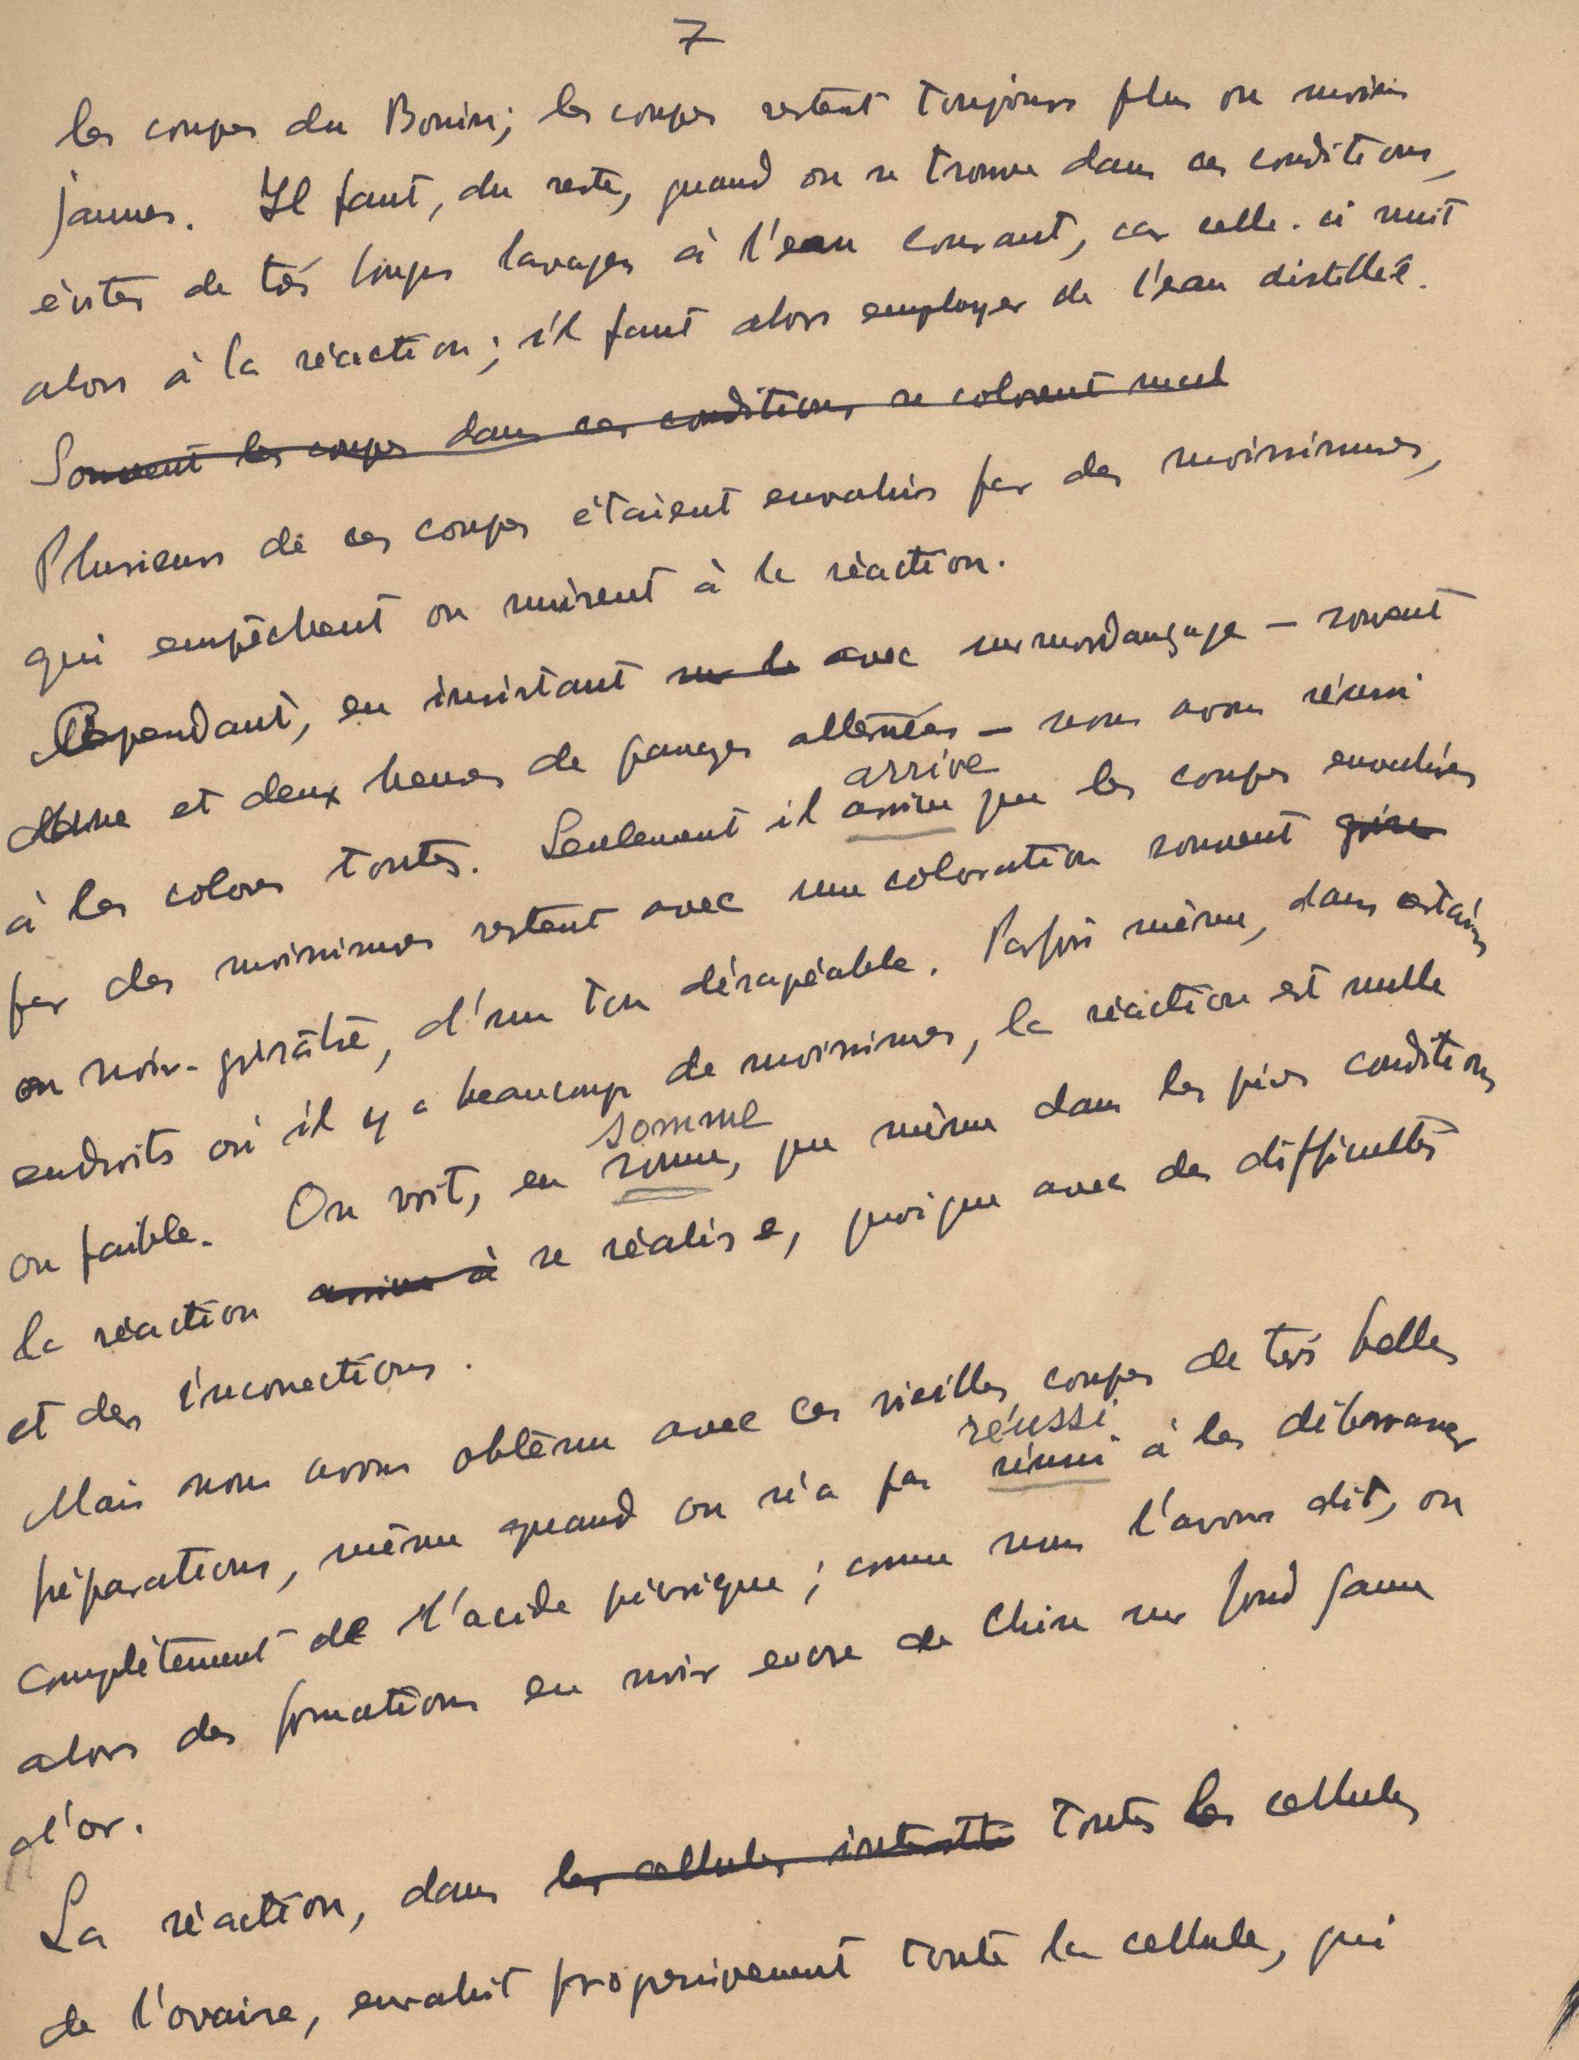 7
les coupes du Bouin; les coupes restent toujours plus ou moins
jaunes. Il faut, du reste, quand on se trouve dans ces conditions,
éviter de très longs lavages à l'eau courant, car celle-ci nuit
alors à la réaction; il faut alors employer de l'eau distillée.
Souvent les coupes dans ces conditions se colorent mal
Plusieurs de ces coupes étaient envahies par des moisissures,
qui empêchent ou nuisent à la réaction.
Cependant, en insistant sur le avec surmordançage – souvent
une et deux heures de passages alternées – nous avons réussi
à les colorer toutes. Seulement il arrive que les coupes envahies
arrive
par des moisissures restent avec une coloration souvent grise
ou noir-grisâtre, d'un ton désagréable. Parfois même, dans certains
endroits où il y a beaucoup de moisissures, la réaction est nulle
ou faible. On voit, en somme, que même dans les pires conditions
somme
la réaction arrive à se réalise, quoique avec des difficultés
et des incorrections.
Mais nous avons obtenu avec ces vieilles coupes de très belles
préparations, même quand on n'a pas réussi à les débarrasser
réussi
complètement de l'acide picrique; comme nous l'avons dit, on
alors des formations en noir encre de Chine sur fond jaune
d'or.
La réaction, dans les cellules toutes les cellules
de l'ovaire, envahit progressivement toute la cellule, qui